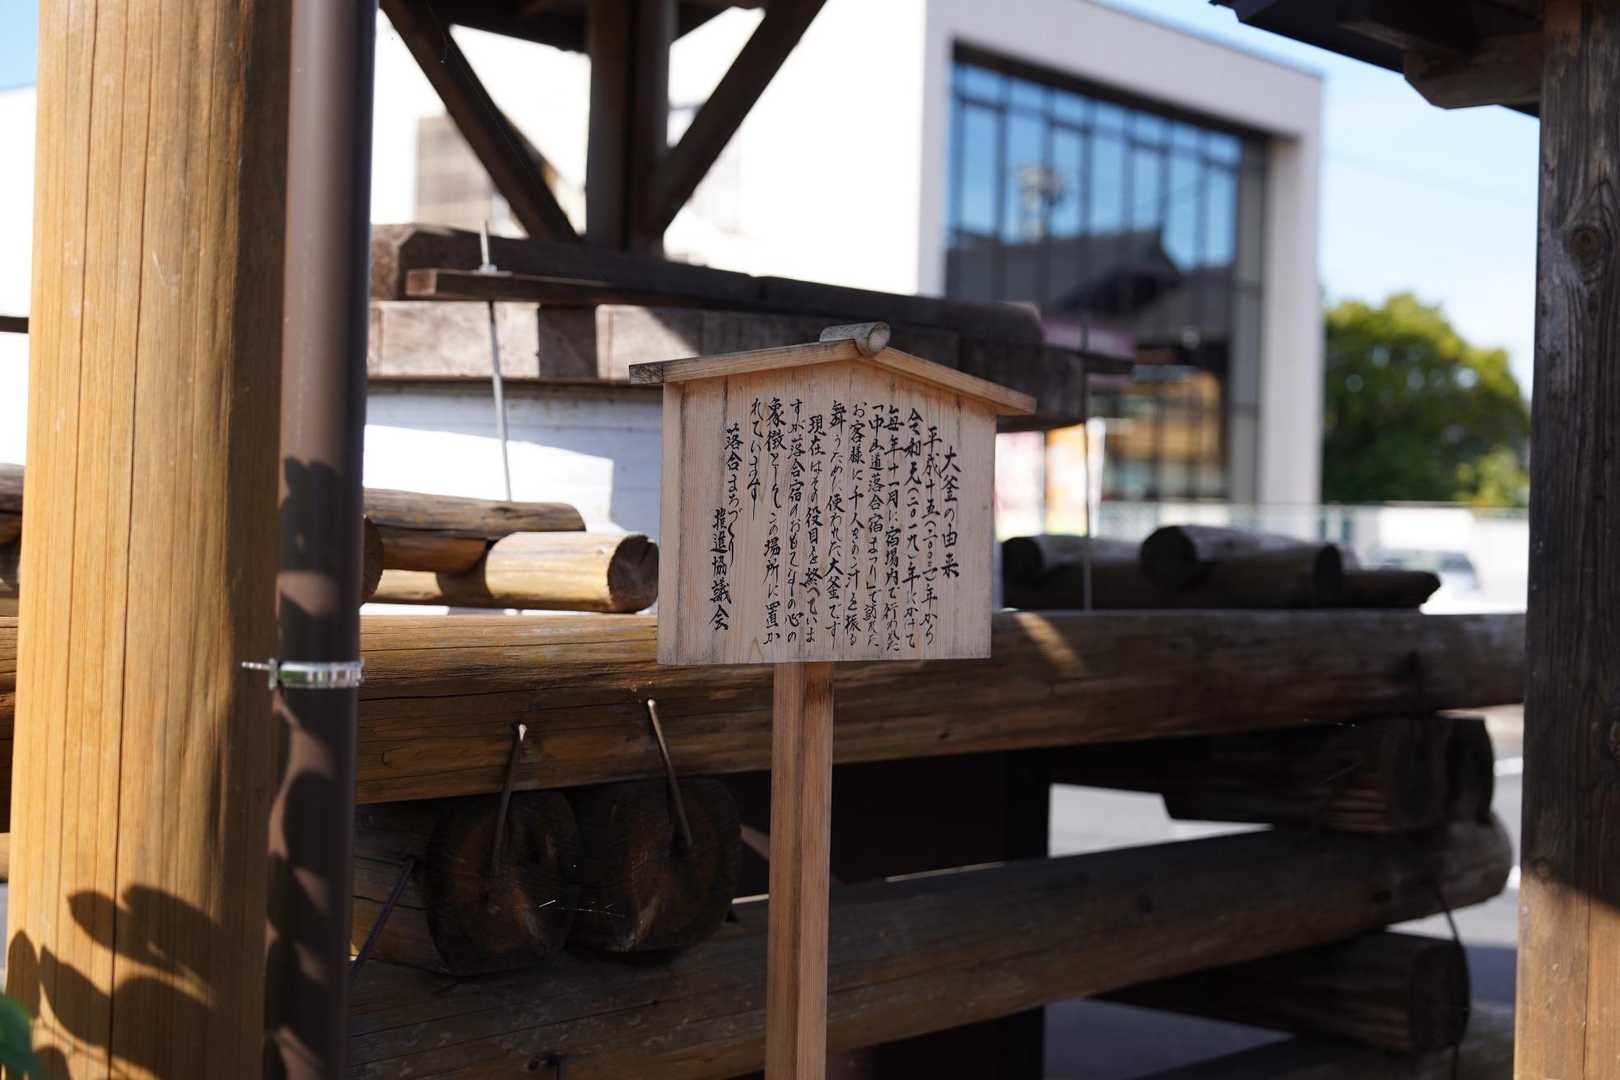 大釜の由来
平成十五(二〇〇三)年から
令和元(二〇一九)年にかけて
毎年十一月に宿場内で行われた
「中山道落合宿まつり」で訪れた
お客様に千人きのこ汁を振る
舞うために使われた大釜です
現在はその役目を終えていま
すが落合宿のおもてなしの心の
象徴としてこの場所に置か
れています
落合まちづくり
推進協議会